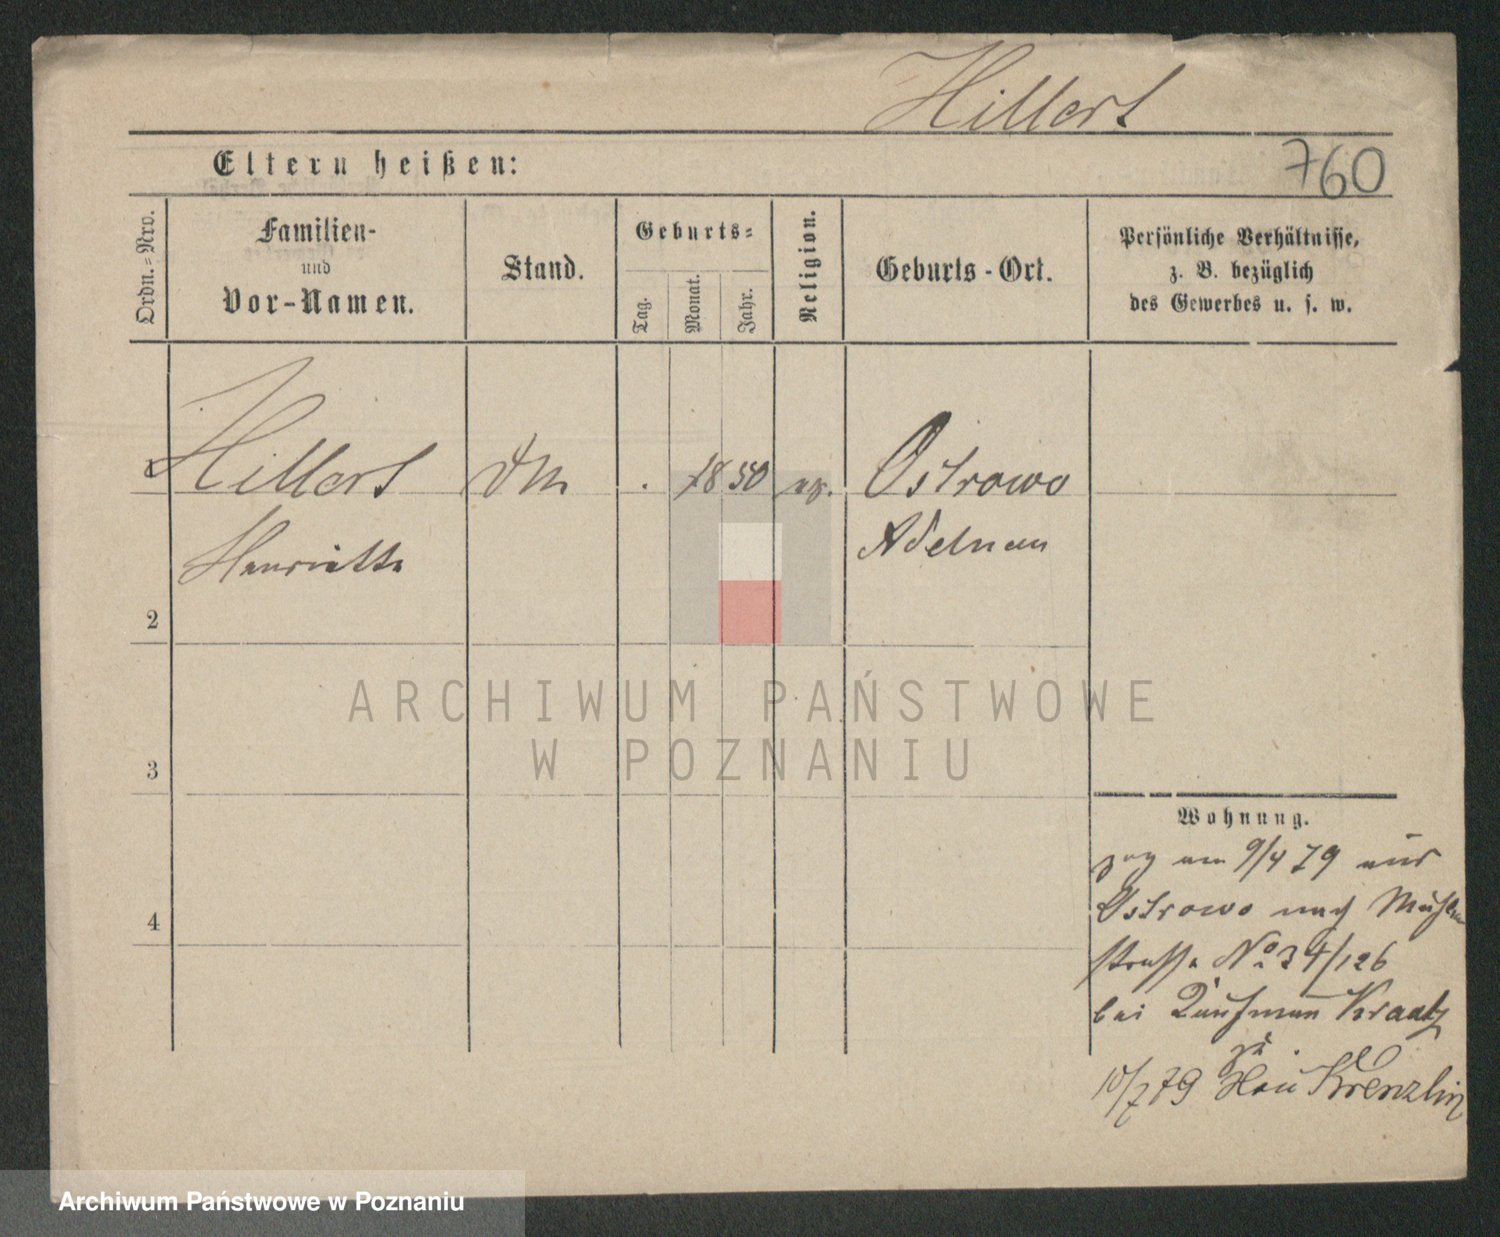 Hillert
Eltern heißen:
760
Ordn.=Nro.
Familien-
und
Vor-Namen.
Stand.
Geburts=
Tag.
Monat.
Jahr.
Religion.
Geburts-Ort.
Persönliche Verhältnisse,
z. B. bezüglich
des Gewerbes u. s. w.
1
Hillert
DM
1850
Ostrowo
Henriette
Adelnau
2
3
4
ARCHIWUM PAŃSTWOWE
W POZNANIU
Wohnung.
zog am 9/4 79 aus
Ostrowo nach Mühlen
strasse No 34/126
bei Kaufmann Kraatz
zu
10/7 79 Krenzlin
Archiwum Państwowe w Poznaniu